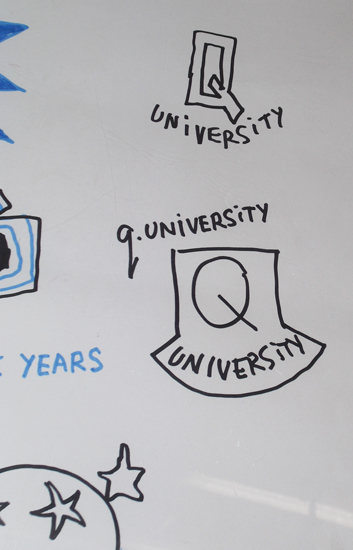 Q
UNiVERSiTY
q.UNiVERSiTY
Q
UNiVERSiTY
YEARS